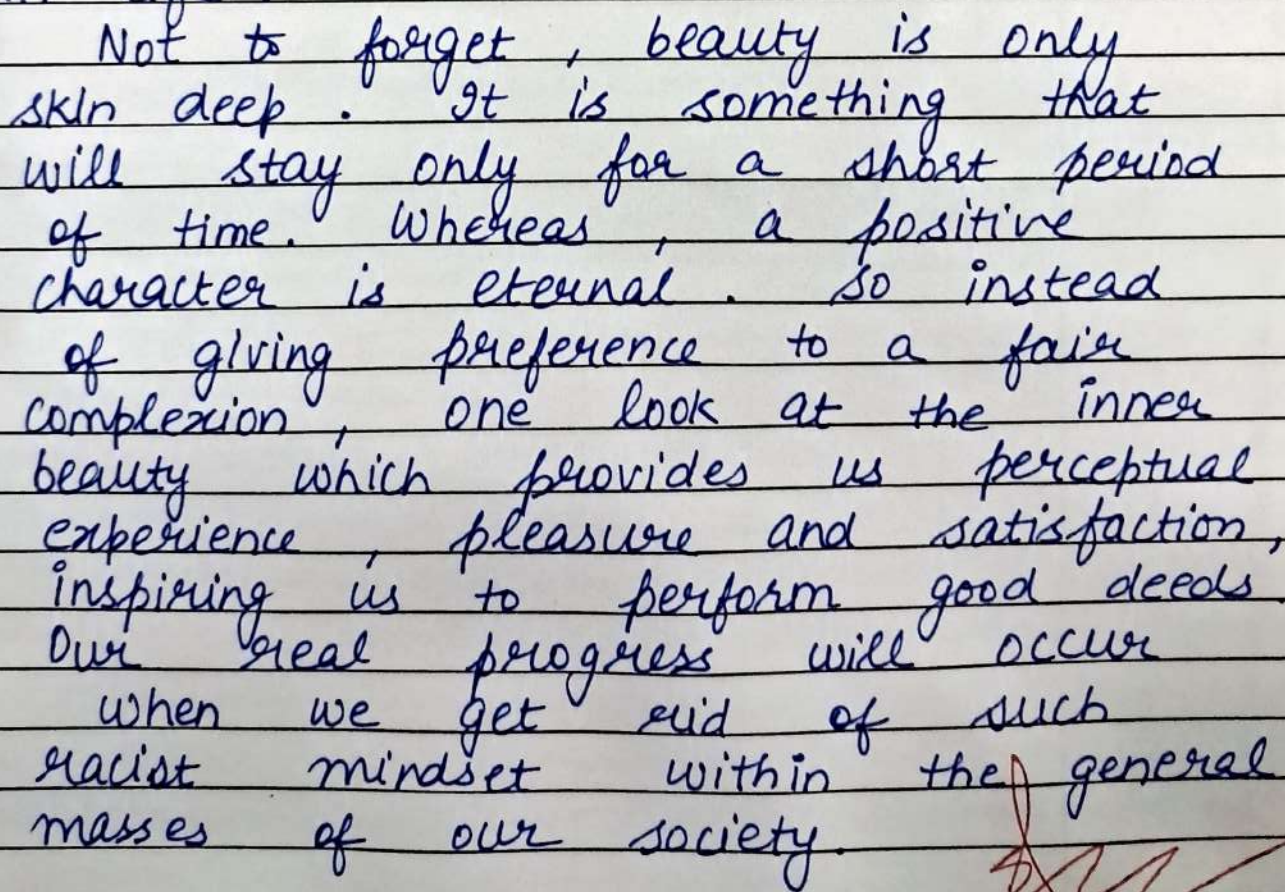 Not to forget , beauty is only
skin deep . It is something that
will stay only for a short period
of time. Whereas , a positive
character is eternal . So instead
of giving preference to a fair
complexion , one look at the inner
beauty which provides us perceptual
experience , pleasure and satisfaction,
inspiring us to perform good deeds.
Our real progress will occur
when we get rid of such
racist mindset within the general
masses of our society.